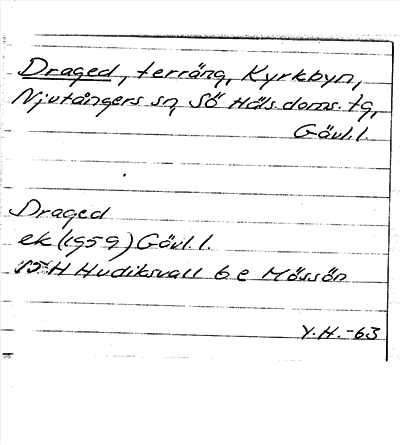 Draged, terräng, Kyrkbyn,
Njutångers sn, Sö Häls. doms. tg,
Gävl.l.
Draged
ek (1959) Gävl.l.
15H Hudiksvall 6e Mössön
Y.H.-63